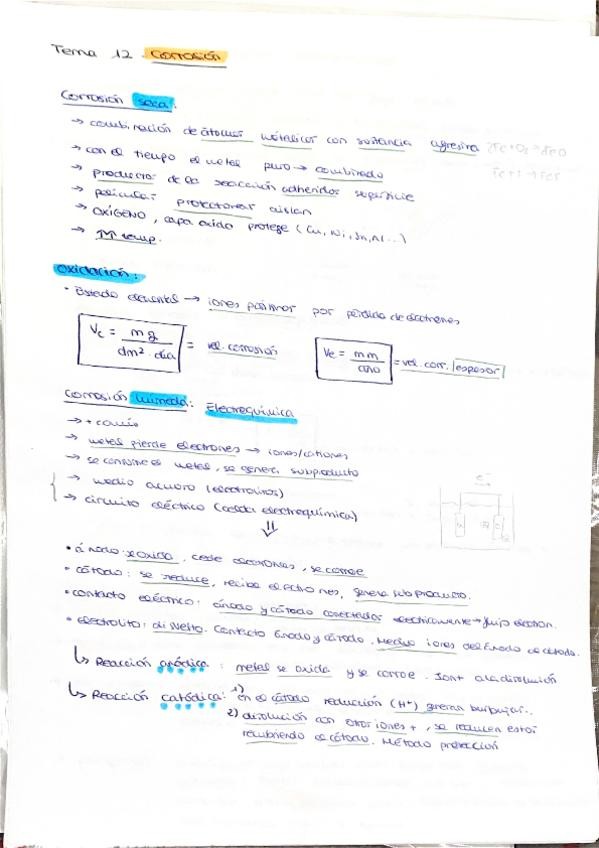 Tema 12. Corrosión
Corrosión seca:
→ combinación de átomos metálicos con sustancia agresiva 2Fe + O2 → FeO
→ con el tiempo el metal puro → combinado
→ productos de la reacción adheridos superficie
→ películas protectoras aislan
→ OXÍGENO, capa oxido protege (Cu, Ni, Sn, Al...)
→ temp.
Oxidación:
• Estado elemental → iones positivos por pérdida de electrones
Vc = mg / dm² · dia = vel. corrosión
Vc = mm / año = vel. corr. |espesor|
Corrosión húmeda: Electroquímica
→ + común
→ metal pierde electrones → iones/cationes
→ se consume el metal, se genera subproducto
→ medio acuoso (electrolitos)
→ circuito eléctrico (celda electroquímica)
e-
⇓
• ánodo: se oxida, cede electrones, se corroe
• cátodo: se reduce, recibe electrones, genera subproducto.
• contacto eléctrico: ánodo y cátodo conectados electricamente → flujo electron.
• electrolito: Contacto ánodo y cátodo. Medio iones del ánodo al cátodo.
↳ Reacción anódica: metal se oxida y se corroe. Ion+ a la disolución
↳ Reacción catódica: 1) en el cátodo reducción (H+) generan burbujas.
2) disolución con otros iones +, se reducen estos
recubriendo el cátodo. Método protección